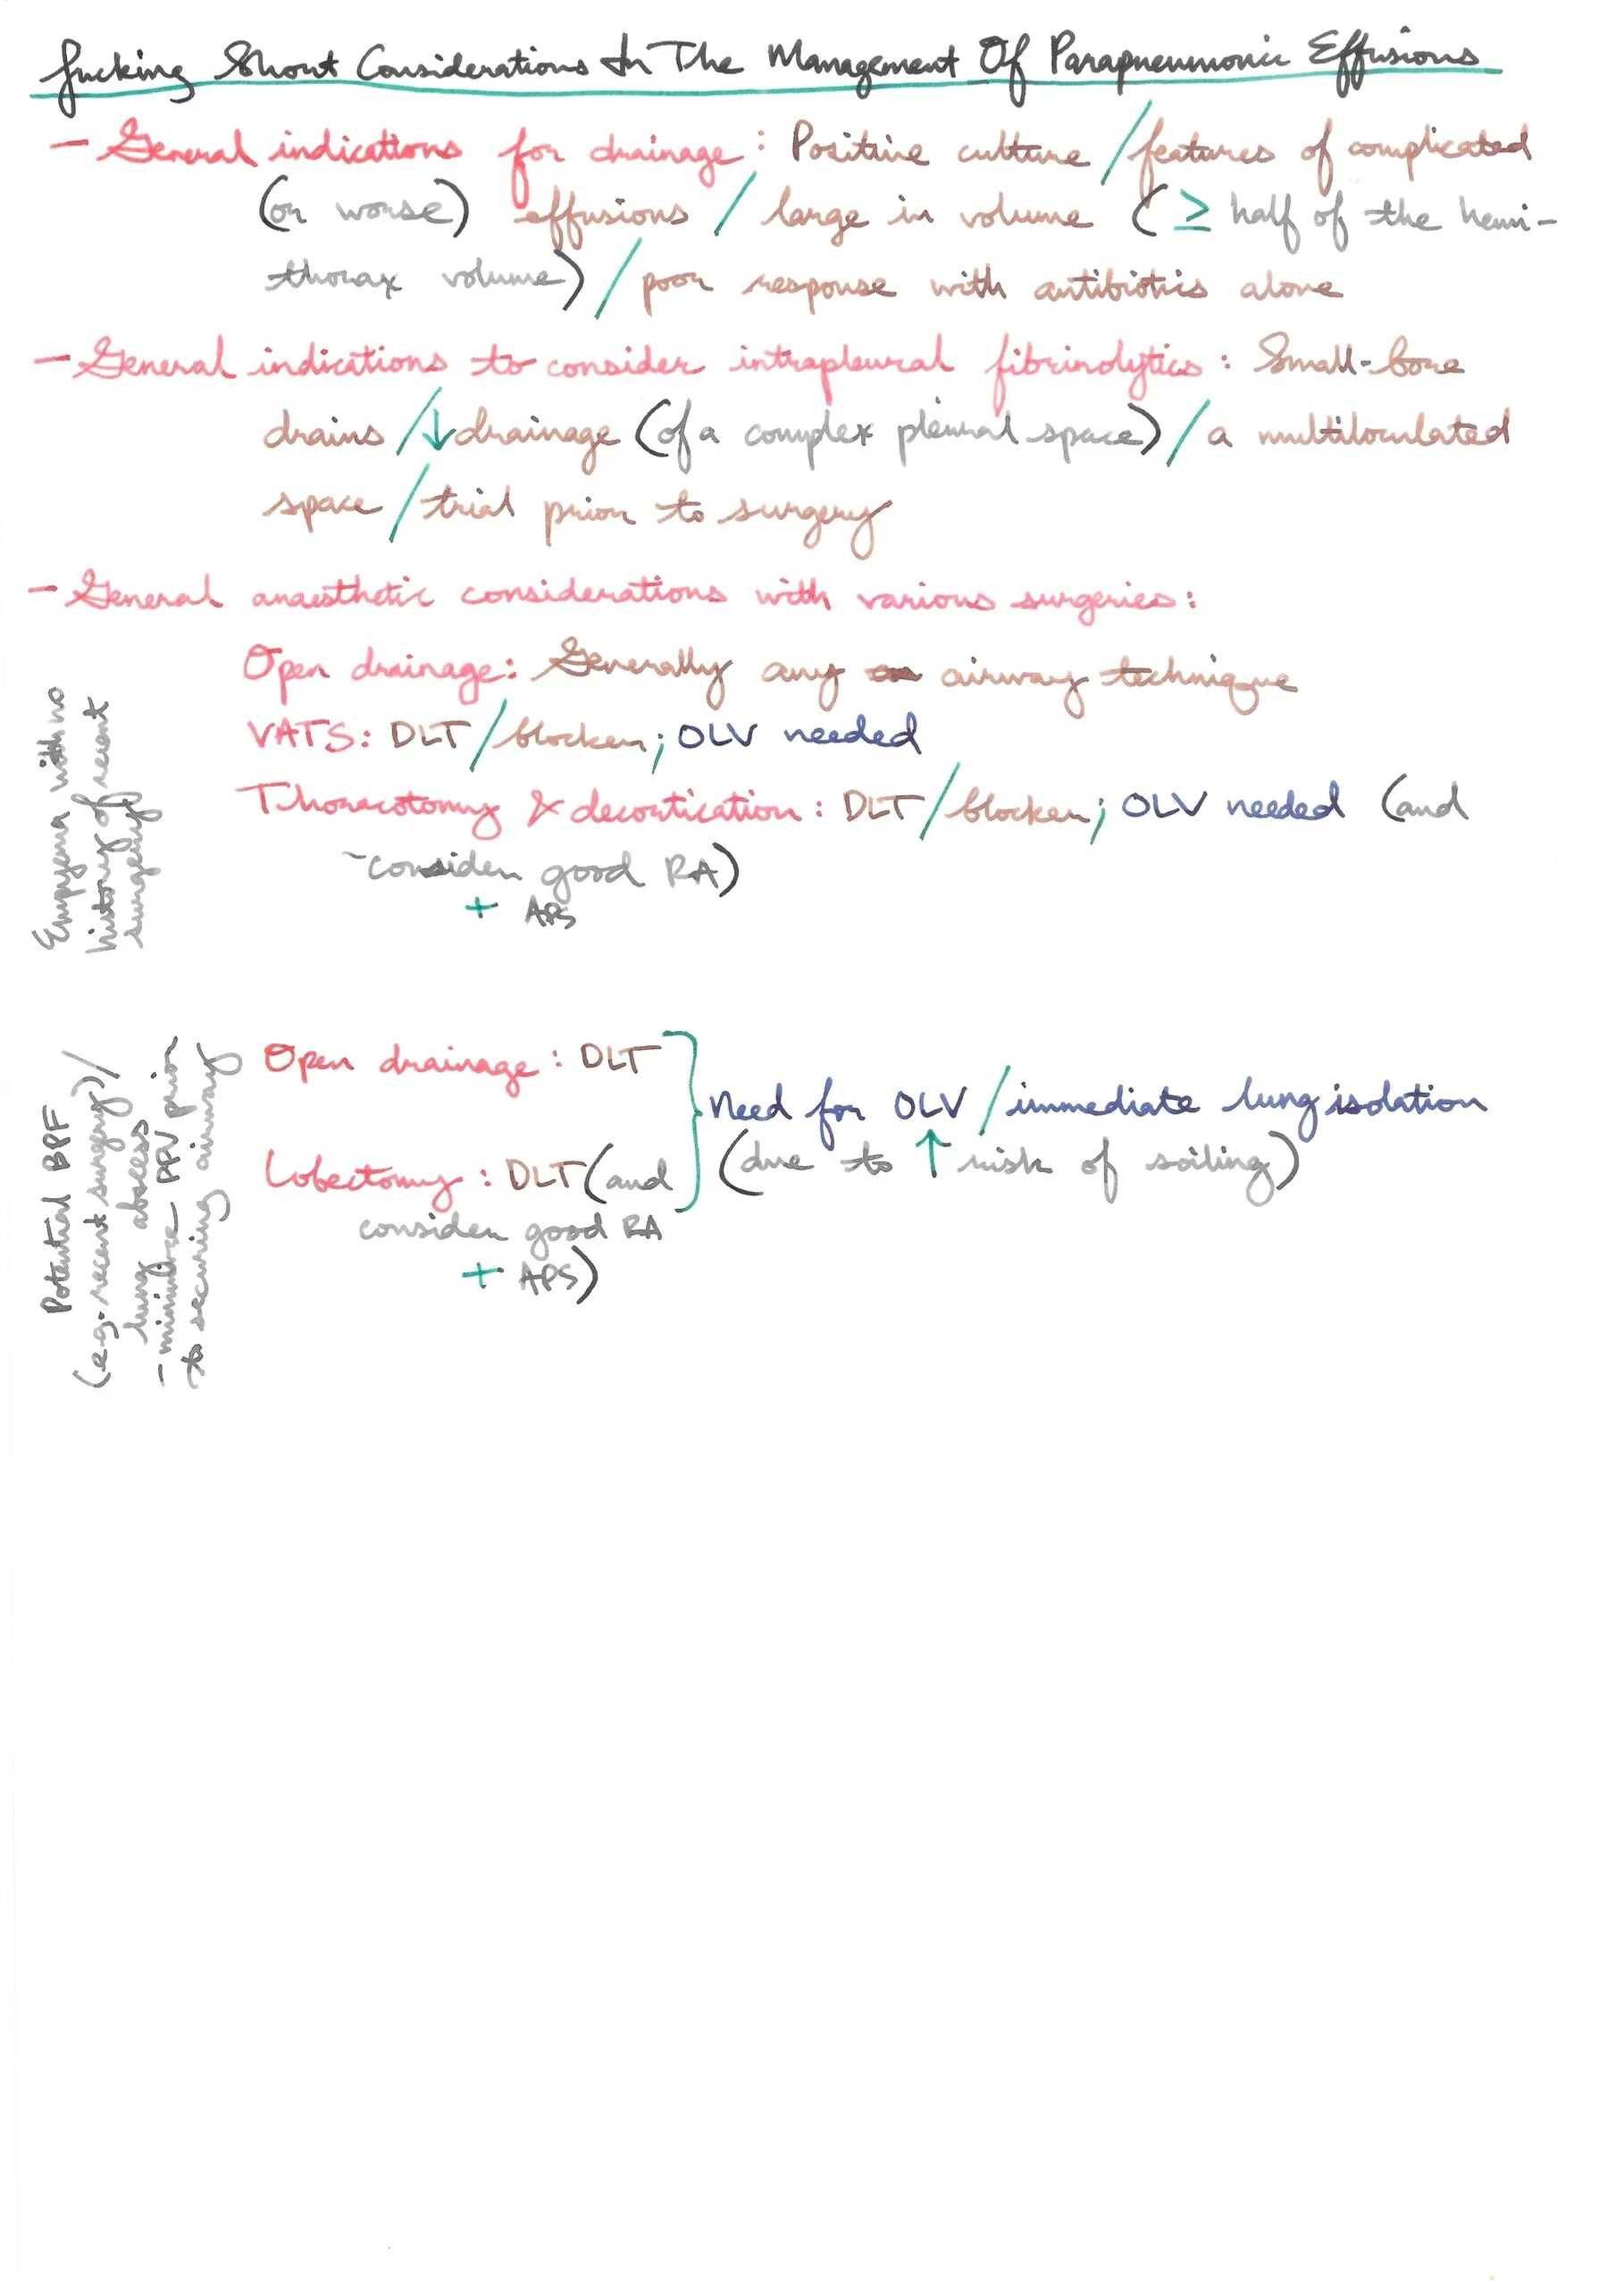 Fucking Short Considerations In The Management Of Parapneumonic Effusions
- General indications for drainage: Positive culture / features of complicated
(or worse) effusions / large in volume (≥ half of the hemi-
thorax volume) / poor response with antibiotics alone
- General indications to consider intrapleural fibrinolytics: Small-bore
drains / ↓ drainage (of a complex pleural space) / a multiloculated
space / trial prior to surgery
- General anaesthetic considerations with various surgeries:
Empyema with no
history of recent
surgery
Open drainage: Generally any airway technique
VATS: DLT / blocker; OLV needed
Thoracotomy & decortication: DLT / blocker; OLV needed (and
consider good RA)
+ APS
Potential BPF
(e.g. recent surgery) /
lung abscess
- minimize PPV prior
to securing airway
Open drainage: DLT
Need for OLV / immediate lung isolation
(due to ↑ risk of soiling)
Lobectomy: DLT (and
consider good RA
+ APS)